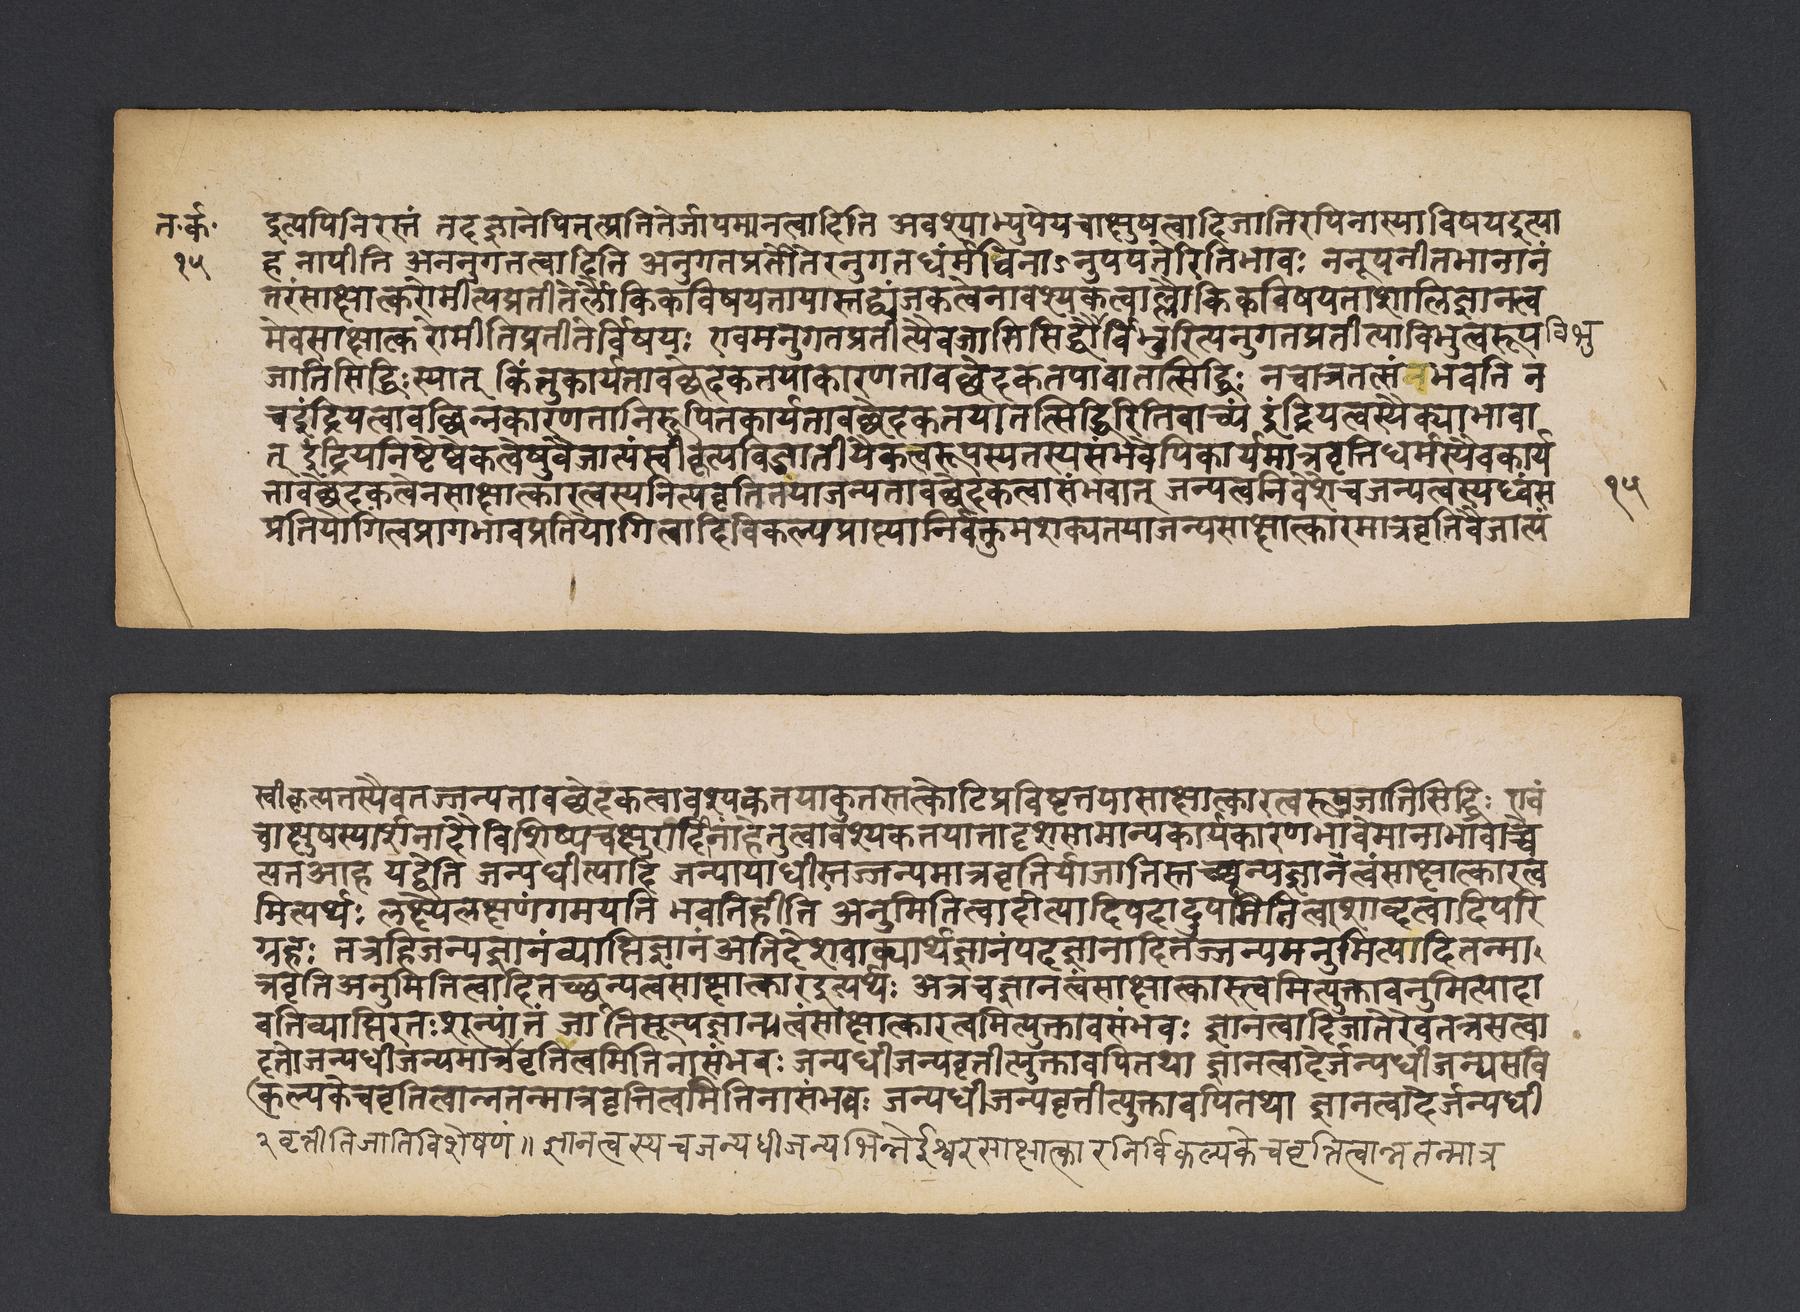 त॰र्क॰
१५
दूत्यपिनिरस्तं तदज्ञानेपितत्प्रतितेर्जापमानत्वादिति अवश्याभ्युपेयचाक्षुषत्वादिजातिरपिनास्याविषयइत्या
ह नापीति अननुगतत्वादिति अनुगतप्रतीतेरनुगतधर्मंविनाऽनुपपत्तेरितिभावः ननूपनीतभानानं
तरंसाक्षात्करोमीत्यप्रतीतेर्लौकिकविषयतायास्तद्व्यंजकत्वेनावश्यकत्वाल्लौकिकविषयताशालिज्ञानत्व
मेवसाक्षात्करोमीतिप्रतीतेर्विषयः एवमनुगतप्रतीत्यैवजातिसिद्धौर्विभुरित्यनुगतप्रतीत्याविभुत्वरूप
विभु
जातिसिद्धिःस्यात् किंतुकार्यतावच्छेदकतयाकारणतावच्छेदकतयावातत्सिद्धिः नचात्रतत्संभवति न
चइंद्रियत्वावच्छिन्नकारणतानिरूपितकार्यतावच्छेदकतयातत्सिद्धिरितिवाच्यं इंद्रियत्वस्यैक्याभावा
त् इंद्रियनिष्टेष्वेकत्वेषुवैजात्यंस्वीकृत्यविजातीयैकत्वरूपस्यतस्यसंभवेपिकार्यमात्रवृत्तिधर्मस्यैवकार्य
तावच्छेदकत्वेनसाक्षात्कारत्वस्यनित्यवृत्तितयाजन्यतावच्छेदकत्वासंभवात् जन्यत्वनिवेशेचजन्यत्वस्यध्वंस
१५
प्रतियोगित्वप्रागभावप्रतियोगित्वादिविकल्पग्राप्त्यानिर्वक्तुमशक्यतयाजन्यसाक्षात्कारमात्रवृत्तिवैजात्यं
स्वीकृत्यतस्यैवतज्जन्यतावच्छेदकत्वावश्यकतयाकुतस्तत्कोटिप्रविष्टतयासाक्षात्कारत्वरूपजातिसिद्धिः एवं
चाक्षुषस्पार्शनादौविशिष्यचक्षुरादिनांहेतुत्वावश्यकतयातादृशसामान्यकार्यकारणभावेमानाभावाच्चै
त्यतआह यद्वेति जन्यधीत्यादि जन्यायाधीस्तज्जन्यमात्रवृत्तिर्याजातिस्तच्छून्यज्ञानत्वंसाक्षात्कारत्व
मित्यर्थः लक्ष्येलक्षणंगमयति भवतिहीति अनुमितित्वादीत्यादिपदादुपमितित्वशाब्दत्वादिपरि
ग्रहः तत्रहिजन्यज्ञानंव्याप्तिज्ञानंअतिदेशवाक्यार्थज्ञानंपदज्ञानादितज्जन्यमनुमित्यादितन्मा
त्रवृत्तिअनुमितित्वादितच्छून्यत्वसाक्षात्कारइत्यर्थः अत्रचज्ञानत्वंसाक्षात्कारत्वमित्युक्तावनुमित्यादा
वतिव्याप्तिरतःशून्यांतं जातिशून्यज्ञानत्वंसाक्षात्कारत्वमित्युक्तावसंभवः ज्ञानत्वादिजातेरेवतत्रसत्वा
दतोजन्यधीजन्यमात्रवृत्तित्वमितिनासंभवः जन्यधीजन्यवृत्तीत्युक्तावपितथा ज्ञानत्वादेर्जन्यधीजन्यसवि
कल्पकेचवृत्तित्वान्नतन्मात्रवृत्तित्वमितिनासंभवः जन्यधीजन्यवृत्तीत्युक्तावपितथा ज्ञानत्वादेर्जन्यधी
२ वृत्तीतिजातिविशेषणं॥ ज्ञानत्वस्यचजन्यधीजन्यभिन्नेईश्वरसाक्षात्कारनिर्विकल्पकेचवृत्तित्वान्नतन्मात्र